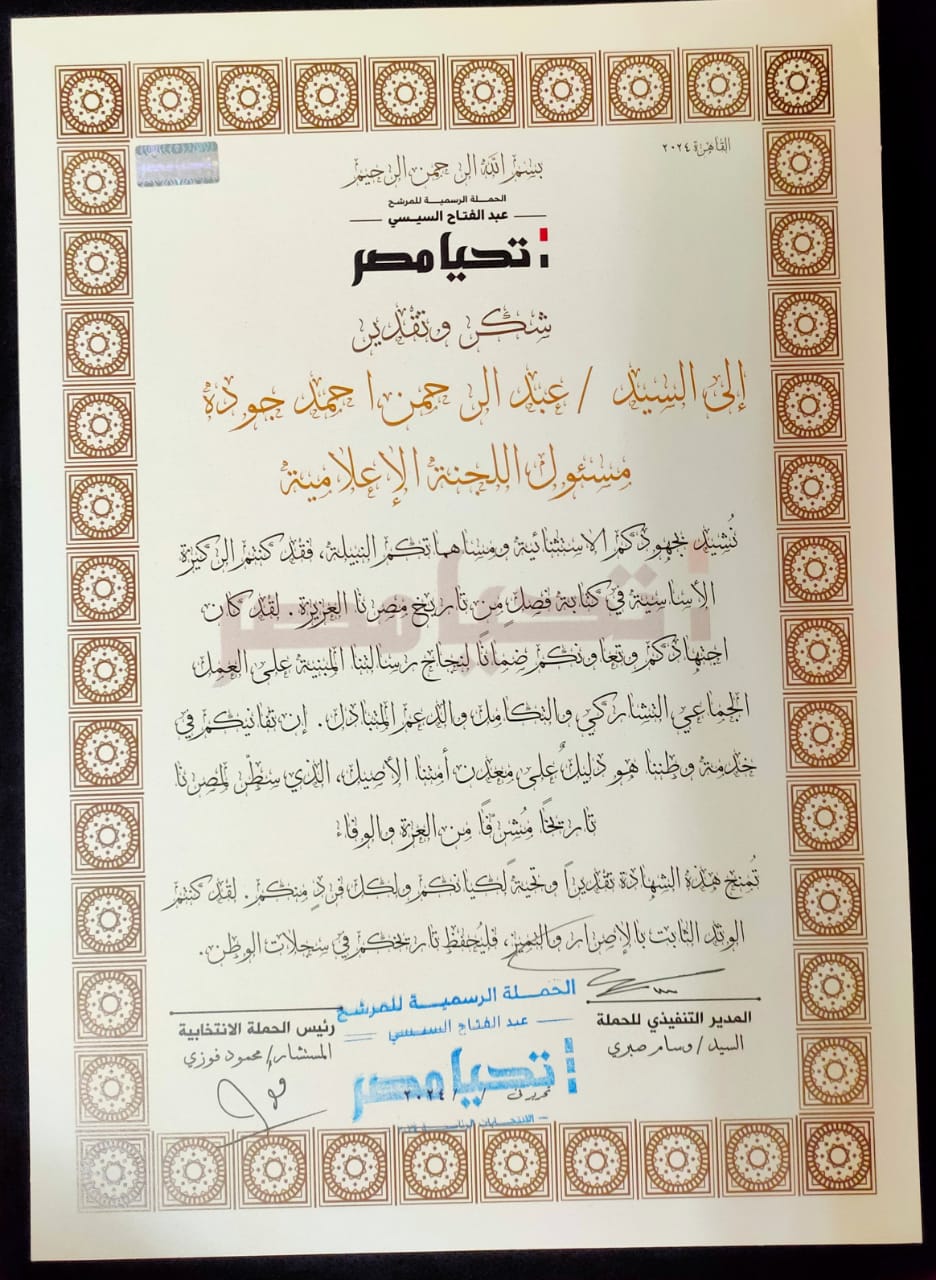 القاهرة ٢٠٢٤
بسم الله الرحمن الرحيم
الحملة الرسمية للمرشح
عبد الفتاح السيسي
تحيا مصر
شكر وتقدير
إلى السيد / عبد الرحمن احمد جودة
مسئول اللجنة الإعلامية
نُشيد بجهودكم الاستثنائية ومساهماتكم النبيلة، فقد كنتم الركيزة
الأساسية في كتابة فصلٍ من تاريخ مصرنا العزيزة. لقد كان
اجتهادكم وتعاونكم ضمانًا لنجاح رسالتنا المبنية على العمل
الجماعي التشاركي والتكامل والدعم المتبادل. إن تفانيكم في
خدمة وطننا هو دليلٌ على معدن أمتنا الأصيل، الذي سطّر لمصرنا
تاريخًا مُشرفًا من العزة والوفاء
تُمنح هذه الشهادة تقديراً وتحيةً لكيانكم ولكل فردٍ منكم. لقد كنتم
الوتد الثابت بالإصرار والتميز، فليُحفظ تاريخكم في سجلات الوطن.
المدير التنفيذي للحملة
السيد / وسام صبري
رئيس الحملة الانتخابية
المستشار/ محمود فوزي
الحملة الرسمية للمرشح
عبد الفتاح السيسي
تحيا مصر
تحريرًا في / ٢٠٢٤
الانتخابات الرئاسية